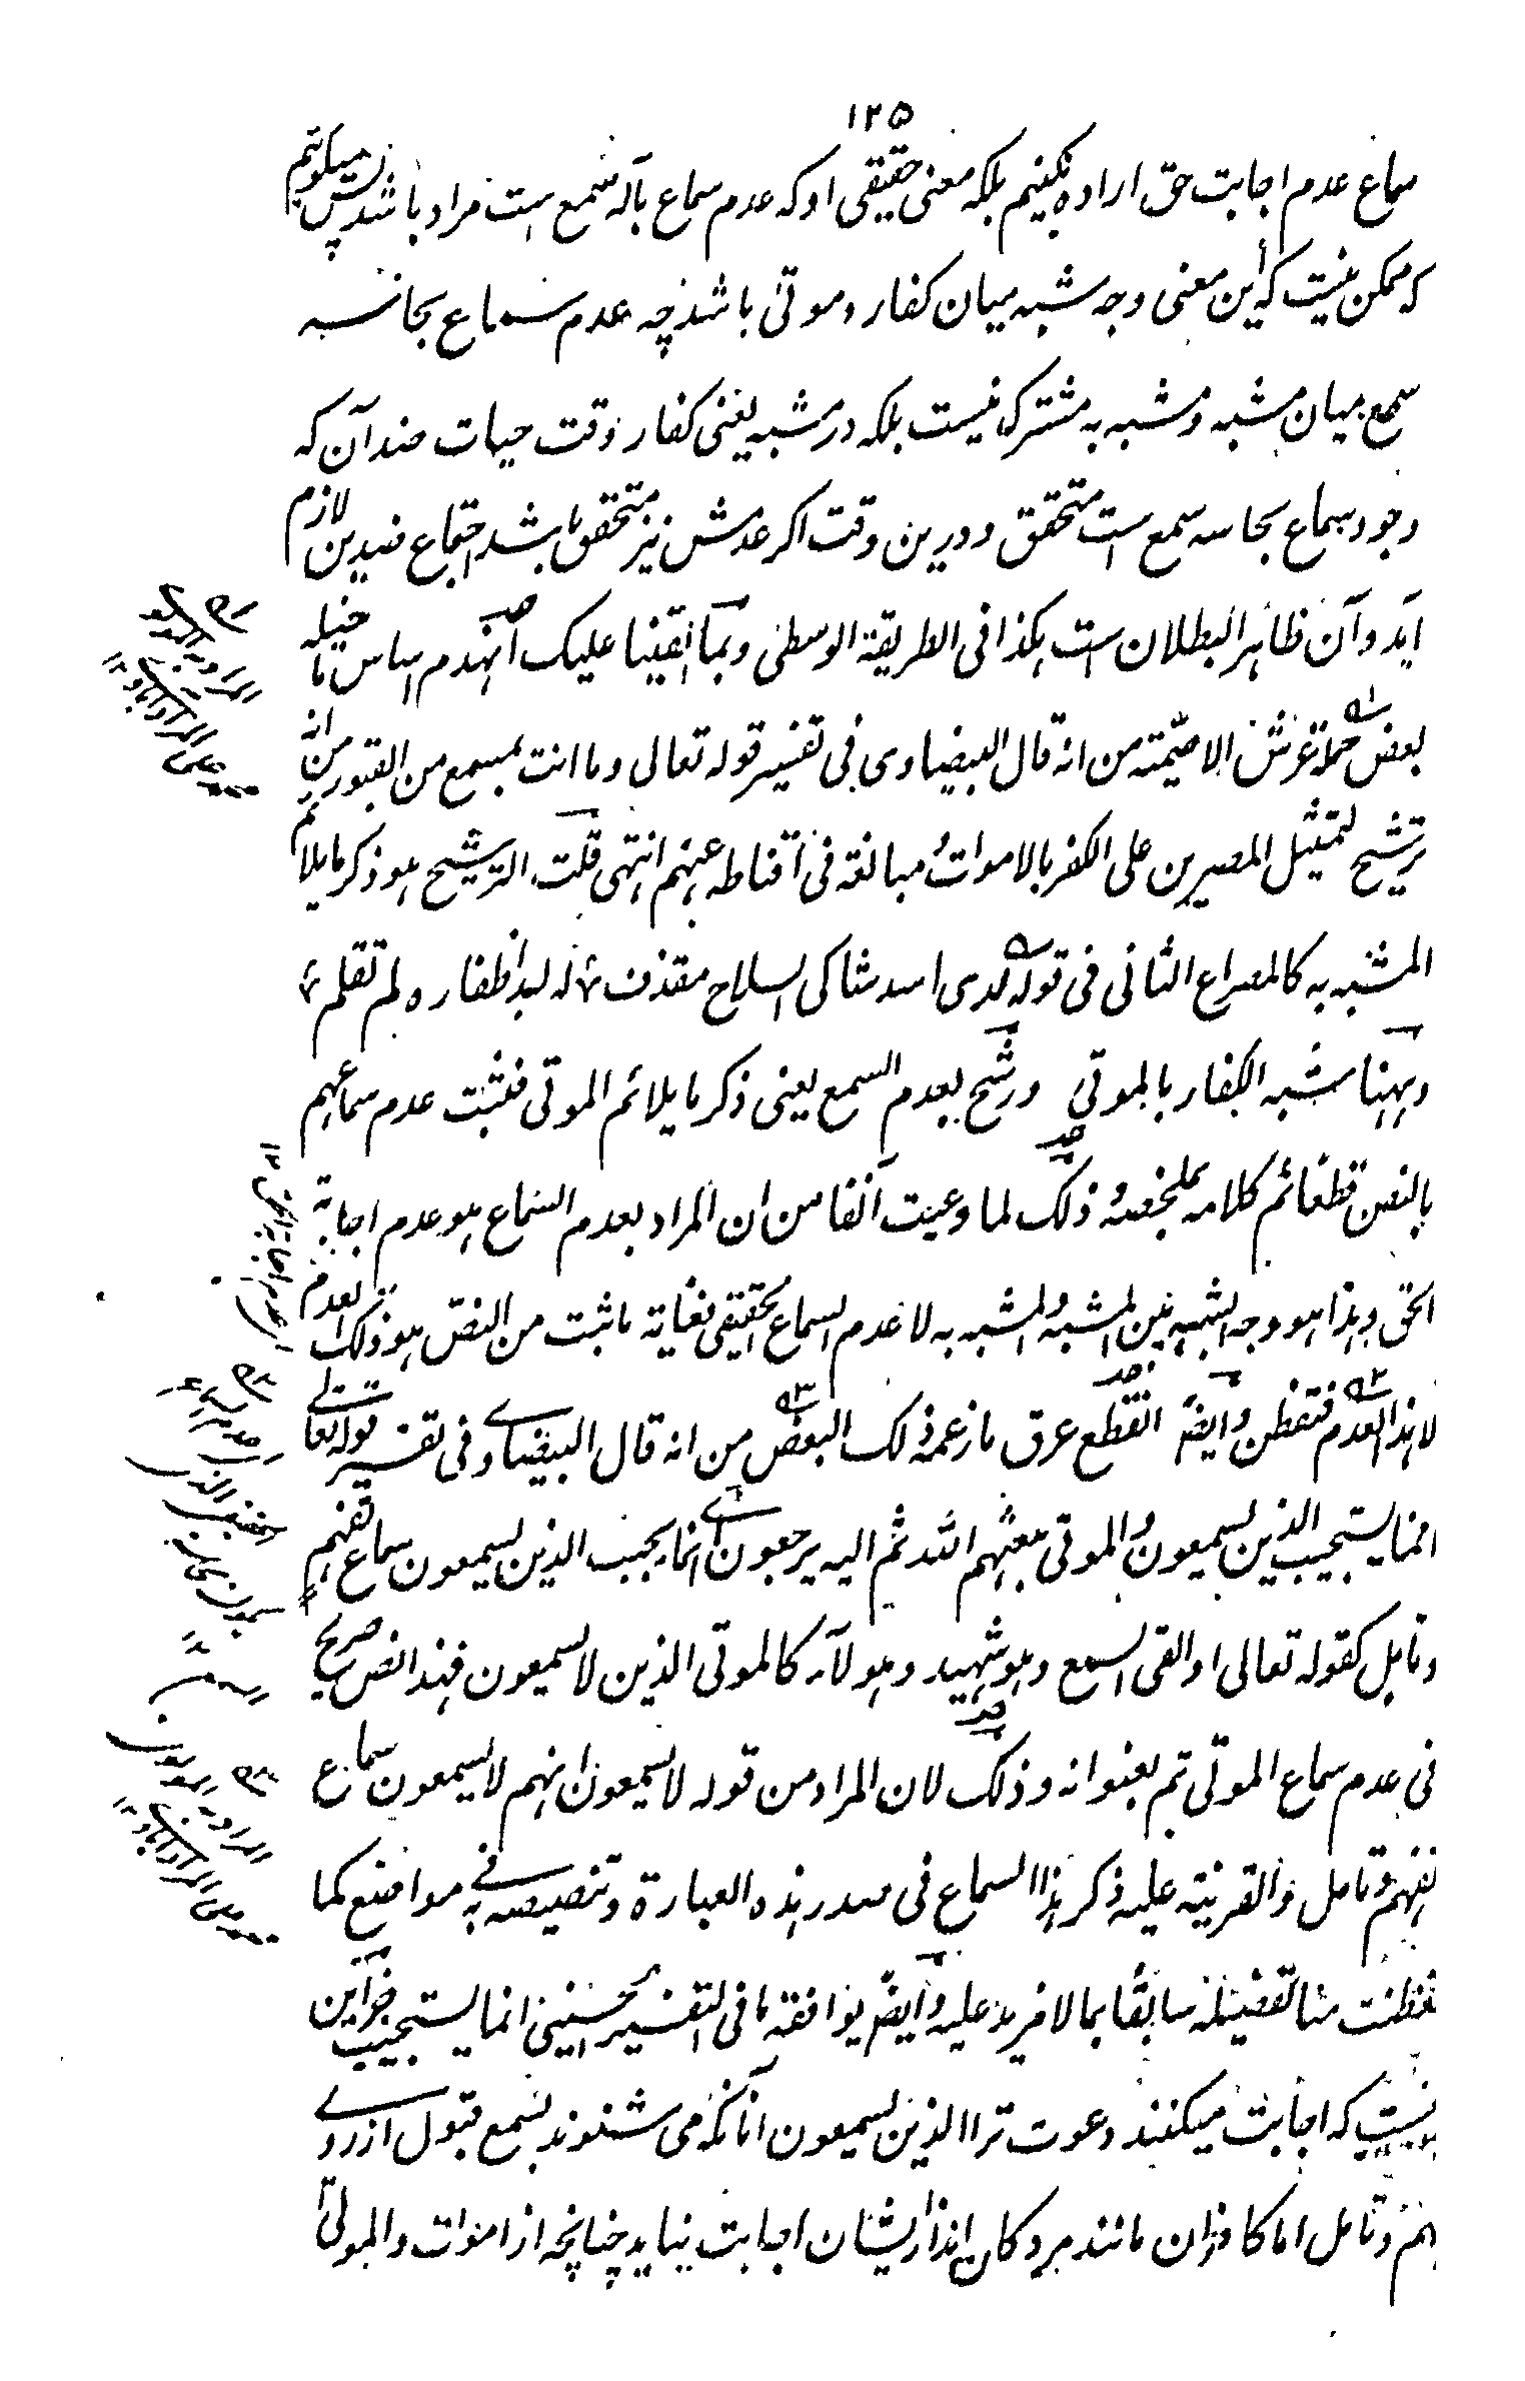 ۱۲۵
سماع عدم اجابت حق اراده نکنیم بلکه معنی حقیقی او که عدم سماع بآله سمع است مراد باشد پس میگوئیم
که ممکن نیست که این معنی وجه شبه میان کفار و موتی باشد چه عدم سماع بحاسه
سمع میان مشبه و مشبه به مشترک نیست بلکه در مشبه یعنی کفار وقت حیات ضد آن که
وجود سماع بحاسه سمع است متحقق و درین وقت اگر عدمش نیز متحقق باشد اجتماع ضدین لازم
آید و آن ظاهر البطلان است هکذا فی الطریقة الوسطی وبما القینا علیک انهدم اساس ما خیله
بعض حملة عرش الاصیمته من انه قال البیضاوی فی تفسیر قوله تعالی وما انت بمسمع من القبور من انه
ترشیح لتمثیل المصرین علی الکفر بالاموات و مبالغة فی اقناطه عنهم انتهی قلت الترشیح هو ذکر ما یلائم
المشبه به کالمصراع الثانی فی قوله لدی اسد شاکی السلاح مقذف ؏ له لبد اظفاره لم تقلم ؏
وههنا شبه الکفار بالموتی ورشح بعدم السمع یعنی ذکر ما یلائم الموتی فثبت عدم سماعهم
بالنص قطعا ثم کلامه بملخصه وذلک لما وعیت آنفا من ان المراد بعدم السماع هو عدم اجابة
الحق وهذا هو وجه الشبه بین المشبه والمشبه به لا عدم السماع الحقیقی فغایة ما ثبت من النص هو ذلک العدم
لا هذا العدم فتفطن وایضا انقطع عرق ما زعمه ذلک البعض من انه قال البیضاوی فی تفسیر قوله تعالی
انما یستجیب الذین یسمعون والموتی یبعثهم الله ثم الیه یرجعون ای انما یجیب الذین یسمعون سماع تفهم
وتامل کقوله تعالی او القی السمع وهو شهید وهولاء کالموتی الذین لا یسمعون فهذا نص صریح
فی عدم سماع الموتی تم بعنوانه وذلک لان المراد من قوله لا یسمعون انهم لا یسمعون سماع
تفهم وتامل والقرینة علیه ذکر هذا السماع فی صدر هذه العبارة وتنصیصه به فی مواضع کما
تفطنت منا تفصیله سابقا بما لا مزید علیه وایضا یوافقه ما فی التفسیر الحسینی انما یستجیب جزاین
نیست که اجابت میکنند دعوت ترا الذین یسمعون آنانکه می شنوند بسمع قبول از روے
فهم و تامل اما کافران مانند مردگان اند از ایشان اجابت نیاید چنانچه از اموات والموتی